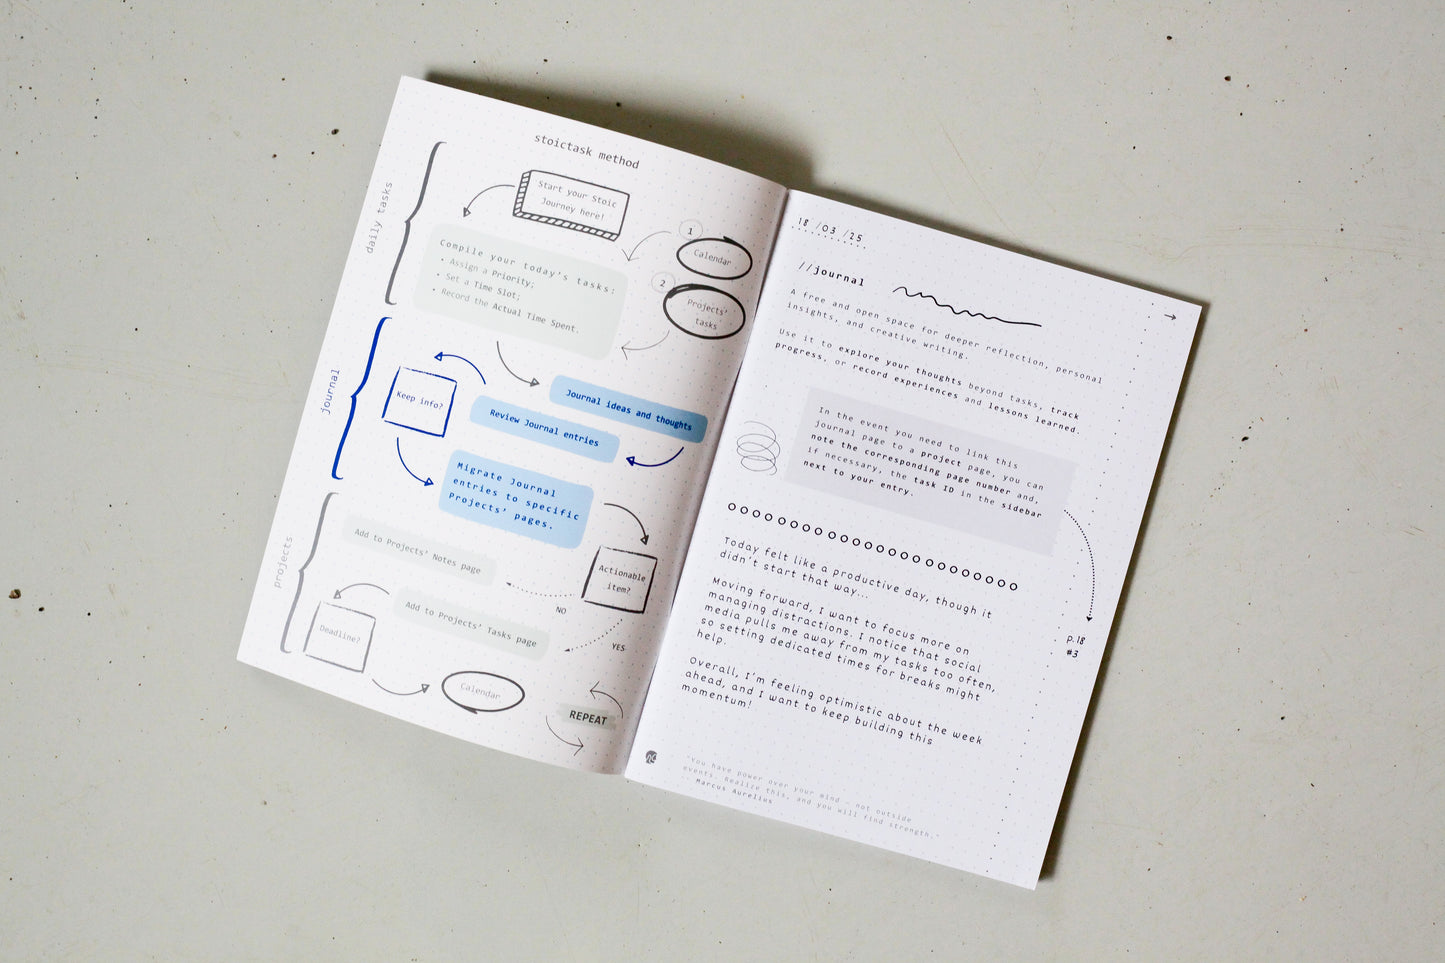 stoictask method
daily tasks
Start your Stoic
Journey here!
1
Calendar
2
Projects'
tasks
Compile your today's tasks:
• Assign a Priority;
• Set a Time Slot;
• Record the Actual Time Spent.
journal
Keep info?
Journal ideas and thoughts
Review Journal entries
Migrate Journal
entries to specific
Projects' pages.
projects
Add to Projects' Notes page
Actionable
item?
NO
Add to Projects' Tasks page
YES
Deadline?
Calendar
REPEAT
18 /03 /25
//journal
→
A free and open space for deeper reflection, personal
insights, and creative writing.
Use it to explore your thoughts beyond tasks, track
progress, or record experiences and lessons learned.
In the event you need to link this
journal page to a project page, you can
note the corresponding page number and,
if necessary, the task ID in the sidebar
next to your entry.
Today felt like a productive day, though it
didn't start that way...
Moving forward, I want to focus more on
managing distractions. I notice that social
media pulls me away from my tasks too often,
so setting dedicated times for breaks might
help.
p.18
#3
Overall, I'm feeling optimistic about the week
ahead, and I want to keep building this
momentum!
"You have power over your mind - not outside
events. Realize this, and you will find strength."
-- Marcus Aurelius